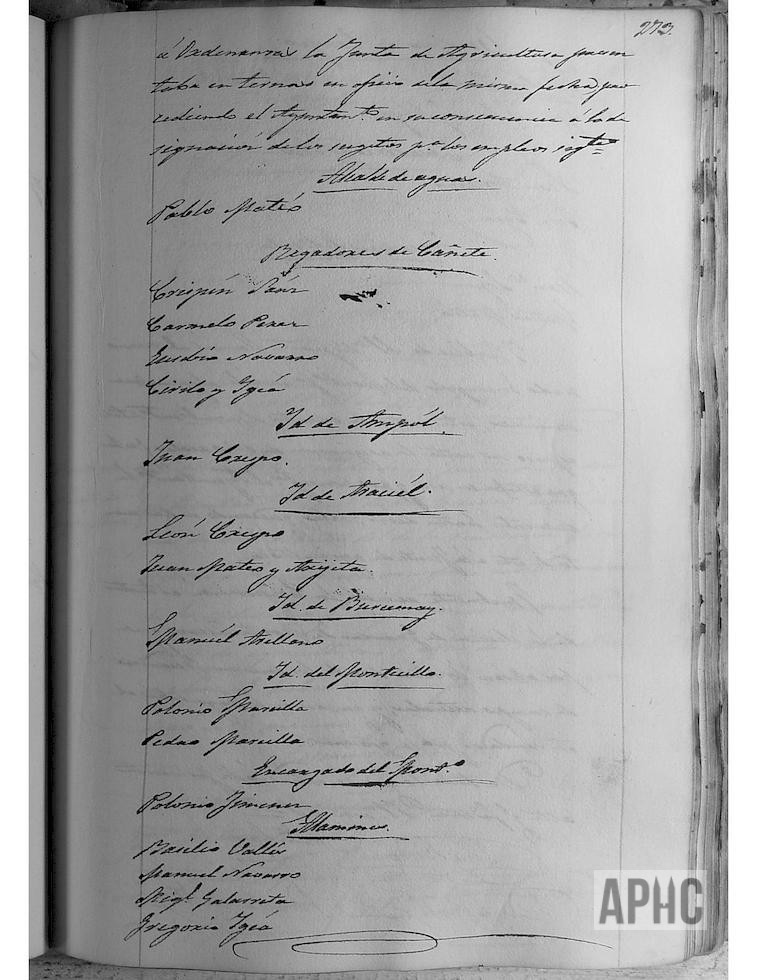 273.
á Ordenanzas la Junta de Agricultura presen
taba en ternas en oficio de la misma fecha, pro
cediendo el Ayuntamt.º en su consecuencia á la de
signación de los sugetos pª los empleos sigtes
Alcalde de aguas.
Pablo Mateo
Regadores de Cañete.
Crispín Sánz
Carmelo Perez
Eusebio Navarro
Cirilo y Igéa
Id de Ampól.
Juan Crespo.
Id de Araciél.
León Crespo
Juan Mateo y Azpeita.
Id. de Burumay.
Manuél Arellano
Id. del Montecillo.
Polonio Marcilla
Pedro Marcilla
Encargado del Mont.º
Polonio Jimenez
Basilio Vallés
Manuel Navarro
Migl. Galarreta
Gregorio Igéa
APHC